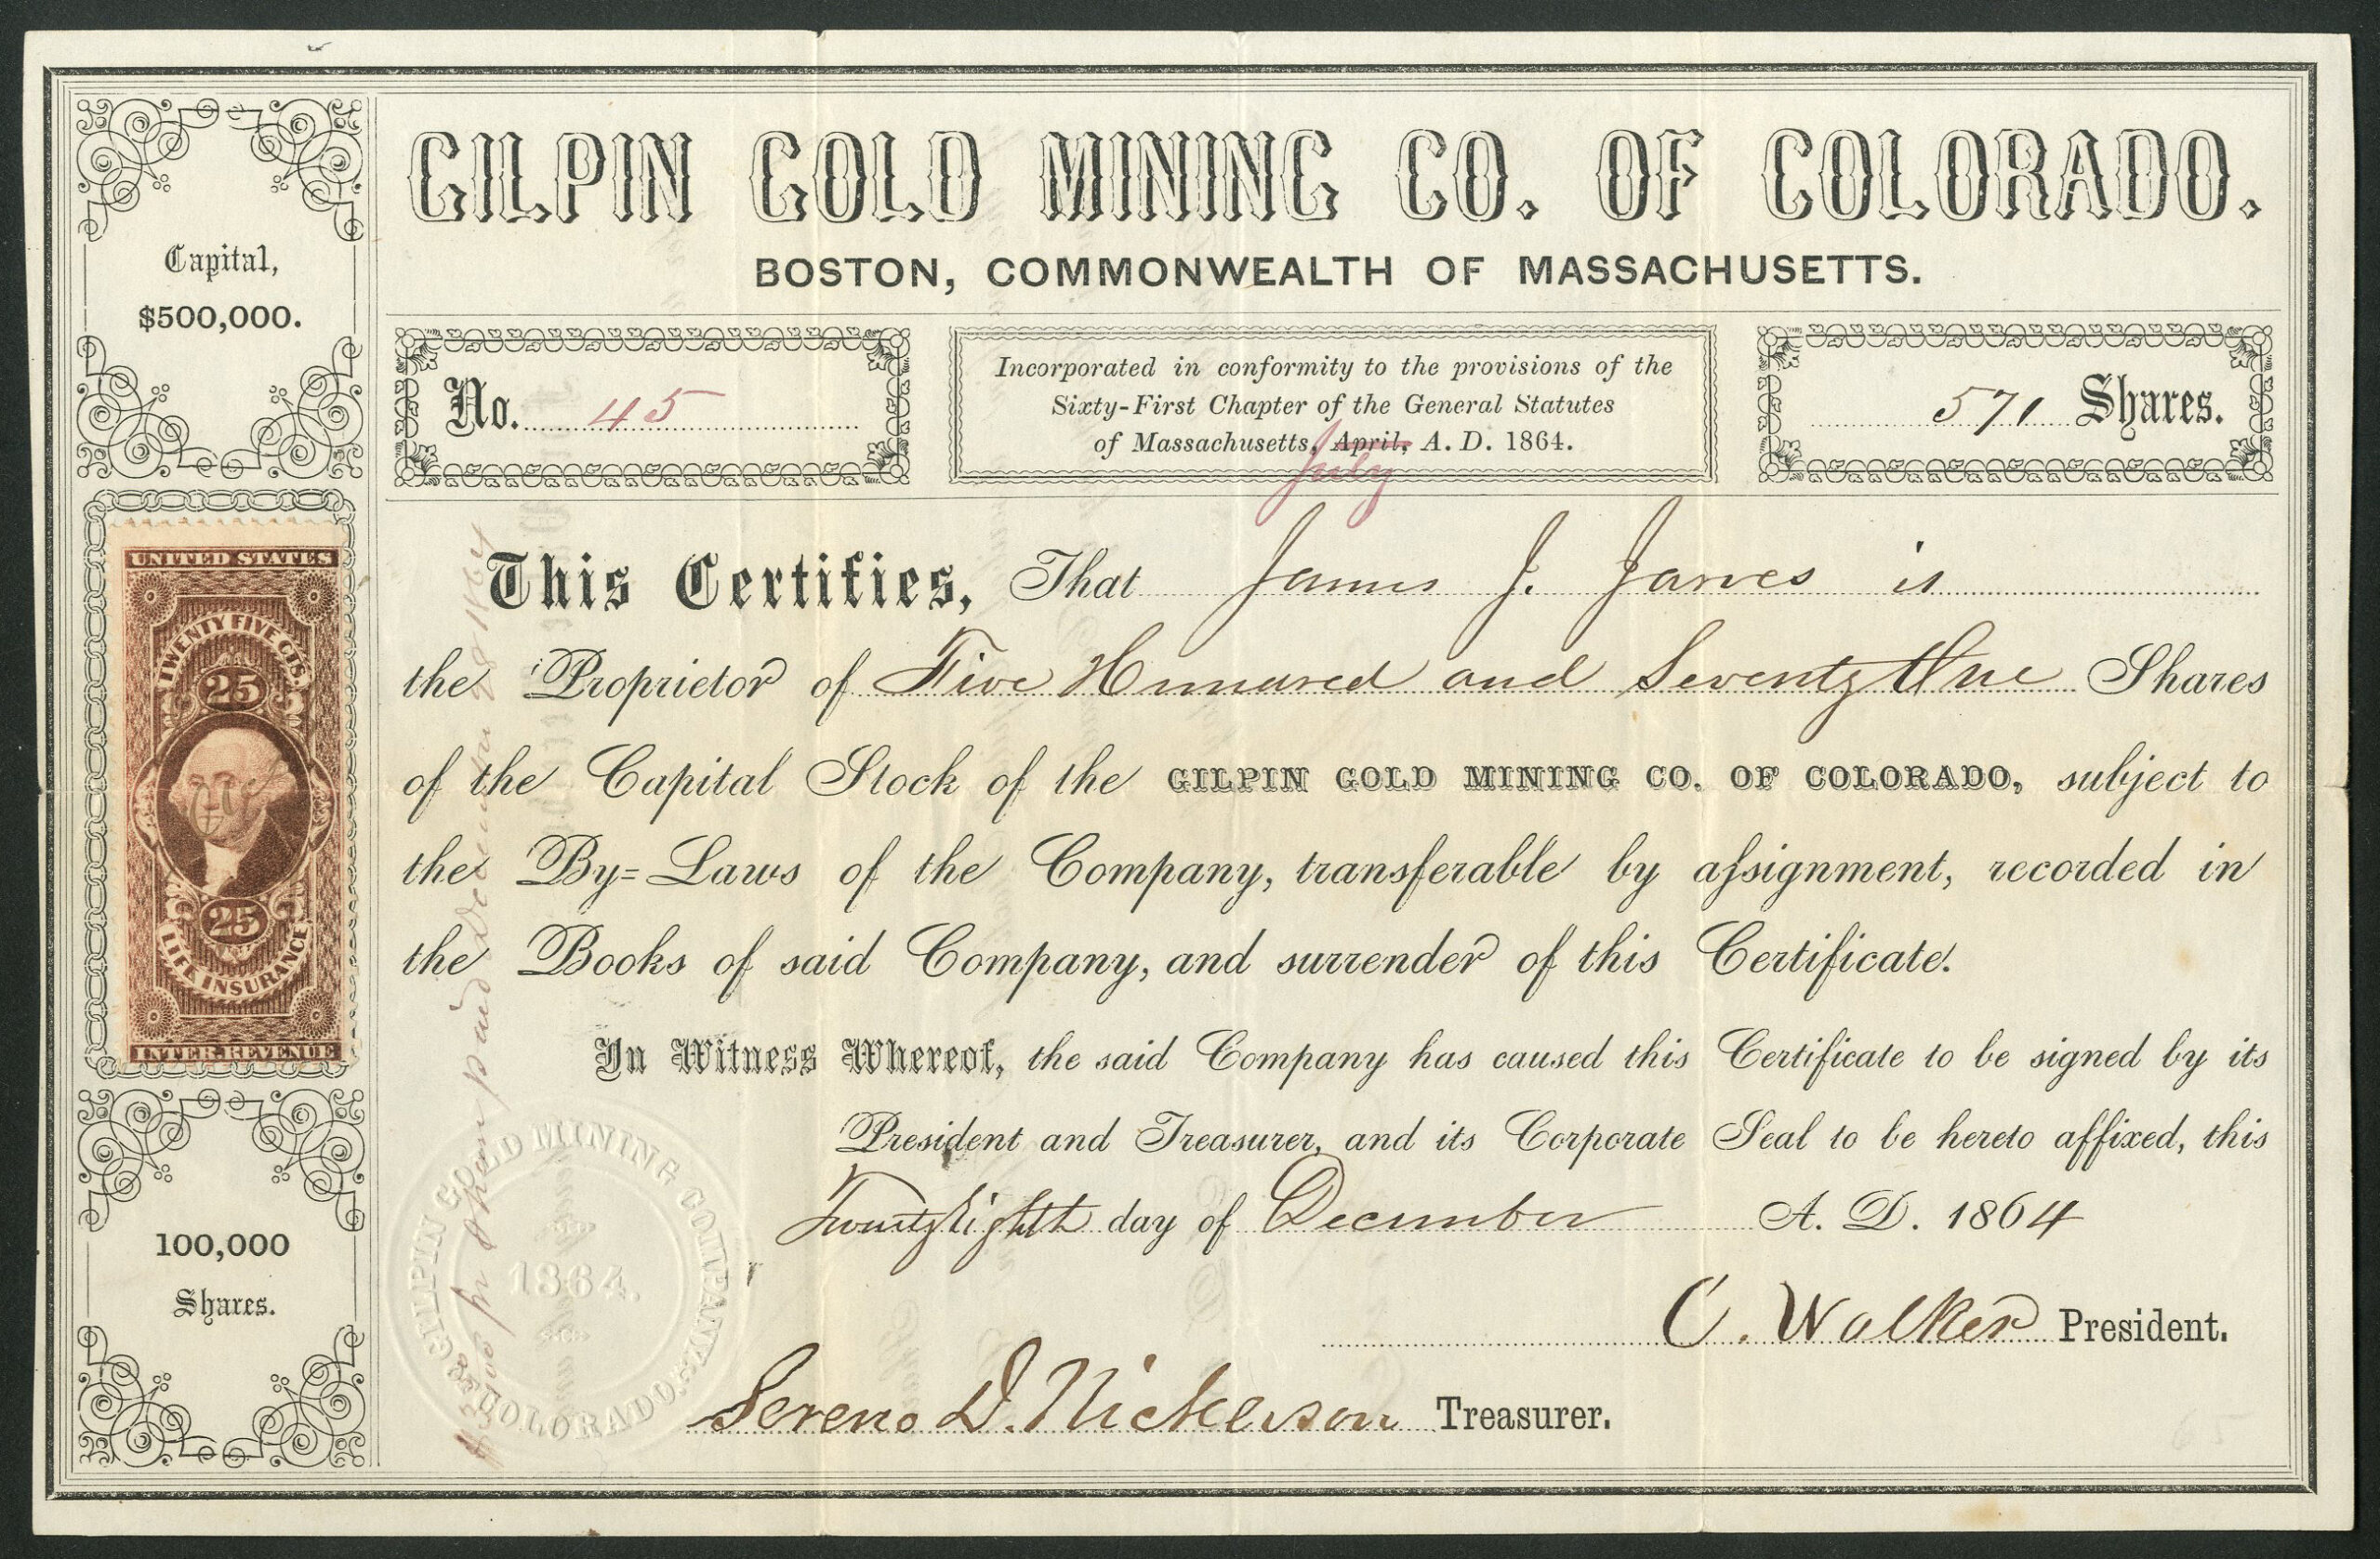 GILPIN GOLD MINING CO. OF COLORADO.
BOSTON, COMMONWEALTH OF MASSACHUSETTS.
Capital,
$500,000.
No. 45
Incorporated in conformity to the provisions of the
Sixty-First Chapter of the General Statutes
of Massachusetts, April, A. D. 1864.
July
571 Shares.
UNITED STATES
TWENTY FIVE CTS.
25
25
LIFE INSURANCE
INTER. REVENUE
100,000
Shares.
This Certifies, That James J. Jarves is
the Proprietor of Five Hundred and Seventy One Shares
of the Capital Stock of the GILPIN GOLD MINING CO. OF COLORADO, subject to
the By-Laws of the Company, transferable by assignment, recorded in
the Books of said Company, and surrender of this Certificate.
In Witness Whereof, the said Company has caused this Certificate to be signed by its
President and Treasurer, and its Corporate Seal to be hereto affixed, this
Twenty Eighth day of December A. D. 1864
C. Walker President.
Sereno D. Nickerson Treasurer.
GILPIN GOLD MINING COMPANY
OF COLORADO.
1864.
per share paid December 28 1864